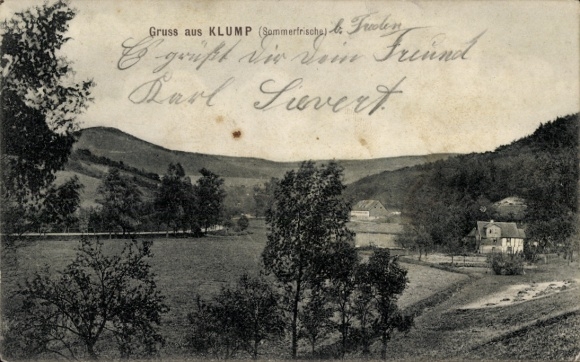 Gruss aus KLUMP (Sommerfrische) b. Freden
Es grüßt Dir Dein Freund
Karl Sievert.